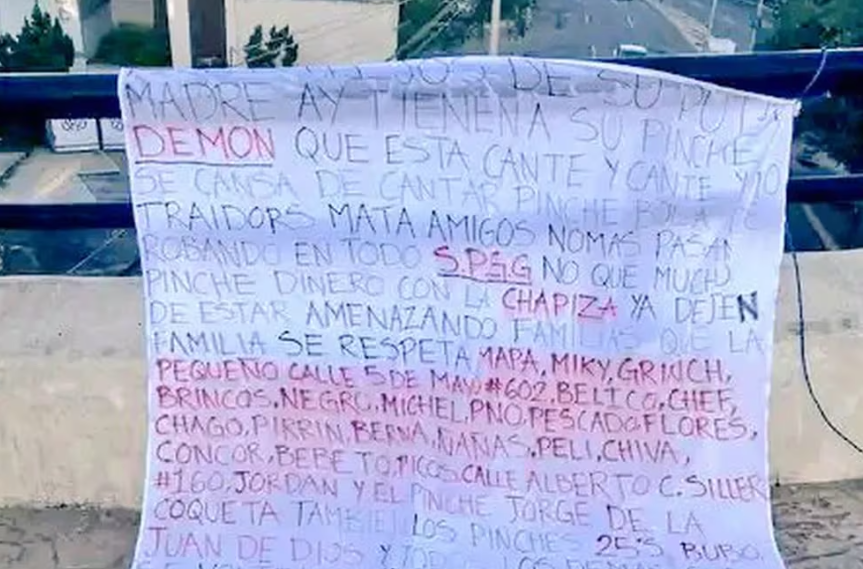 DE SU
MADRE AY TIENEN A SU PINCHE
DEMON QUE ESTA CANTE Y CANTE Y NO
SE CANSA DE CANTAR PINCHE BOLA DE
TRAIDORS MATA AMIGOS NOMAS PASAN
ROBANDO EN TODO S.P.G.G NO QUE MUCHO
PINCHE DINERO CON LA CHAPIZA YA DEJEN
DE ESTAR AMENAZANDO FAMILIAS QUE LA
FAMILIA SE RESPETA MAPA, MIKY, GRINCH,
PEQUEÑO CALLE 5 DE MAYO #602, BELICO, CHEF,
BRINCOS, NEGRO, MICHEL, PNO, PESCADO, FLORES,
CHAGO, PIRRIN, BERNA, ÑAÑAS, PELI, CHIVA,
CONCOR, BEBETO, PICOS CALLE ALBERTO C. SILLER
#160, JORDAN Y EL PINCHE JORGE DE LA
COQUETA TAMBIEN LOS PINCHES 25'S BUBO,
JUAN DE DIOS Y